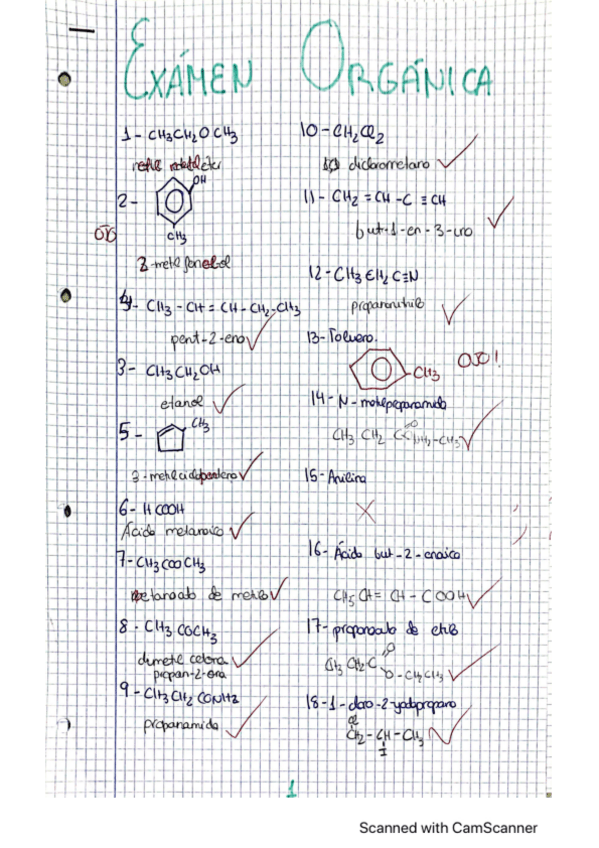 EXÁMEN ORGÁNICA
1- CH3CH2OCH3
2- OH
CH3
OJO
4- CH3-CH=CH-CH2-CH3
pent-2-eno
3- CH3CH2OH
etanol
5- CH3
6- HCOOH
Ácido metanoico
7- CH3COOCH3
metanoato de metilo
8. CH3COCH3
dimetil cetona
propan-2-ona
9- CH3CH2CONH2
propanamida
10- CH2Cl2
diclorometano
11- CH2=CH-C≡CH
but-1-en-3-ino
12- CH3CH2C≡N
propanonitrilo
13- Tolueno.
CH3 OJO!
14- N-metilpropanamida
CH3 CH2 C O NH2-CH3
15- Anilina
16- Ácido but-2-enoico
CH3CH=CH-COOH
17- propanoato de etilo
CH3 CH2-C O
O-CH2CH3
18-1-cloro-2-yodopropano
Cl
CH2-CH-CH3
I
1
Scanned with CamScanner